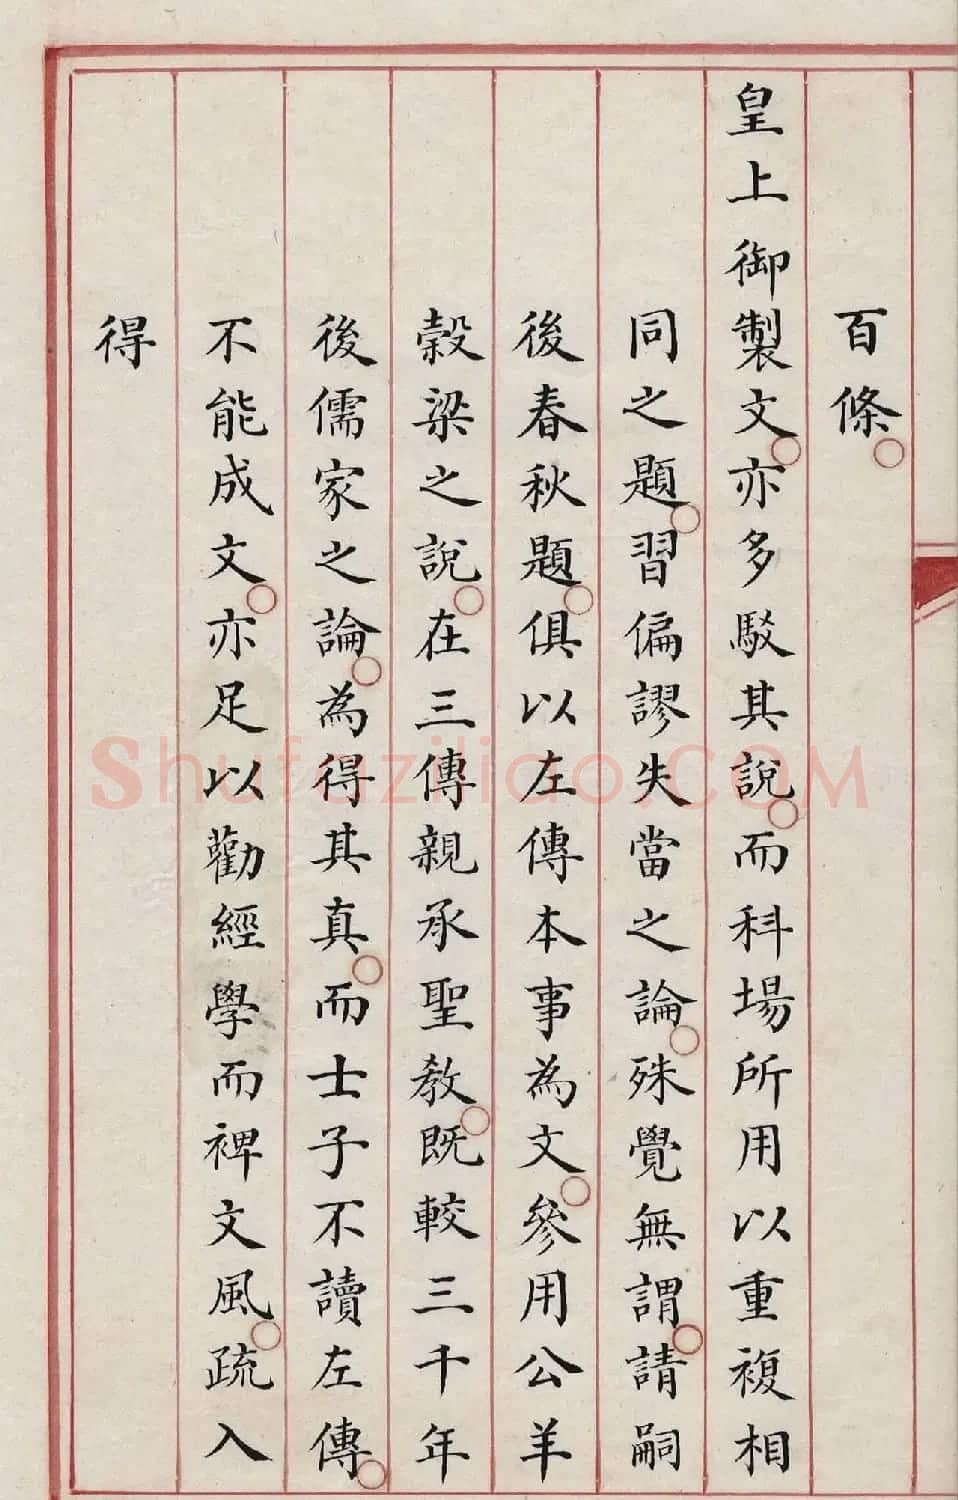 百條
皇上御製文亦多駁其說而科場所用以重複相
同之題習偏謬失當之論殊覺無謂請嗣
後春秋題俱以左傳本事為文參用公羊
穀梁之說在三傳親承聖教既較三千年
後儒家之論為得其真而士子不讀左傳
不能成文亦足以勸經學而裨文風疏入
得
Shufaziliao.COM